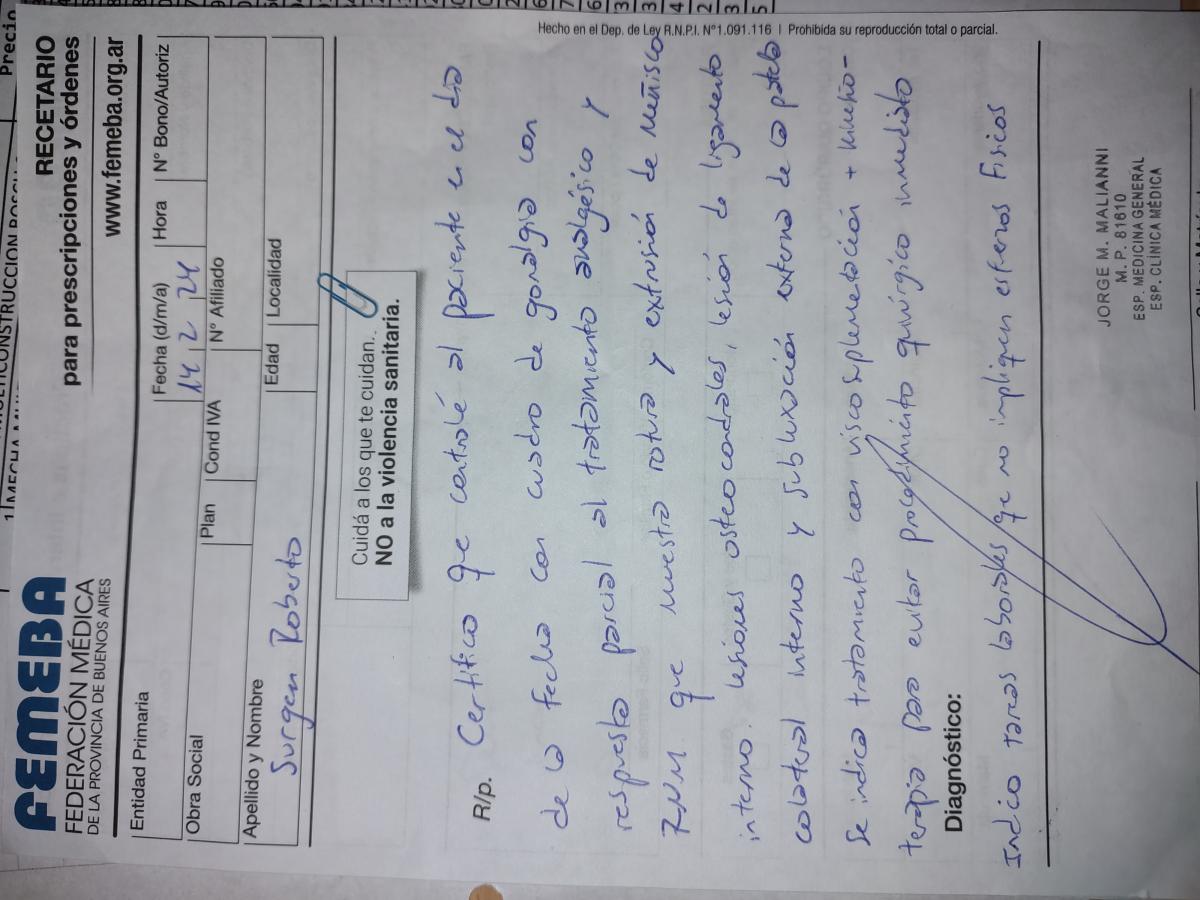 FEMEBA
FEDERACIÓN MÉDICA
DE LA PROVINCIA DE BUENOS AIRES
RECETARIO
para prescripciones y órdenes
www.femeba.org.ar
Entidad Primaria
Fecha (d/m/a) Hora N° Bono/Autoriz
14 2 24
Obra Social Plan Cond IVA N° Afiliado
Apellido y Nombre Edad Localidad
Surgen Roberto
Cuidá a los que te cuidan.
NO a la violencia sanitaria.
R/p. Certifico que controlé al paciente en el día
de la fecha con cuadro de gonalgia con
respuesta parcial al tratamiento analgésico y
RNM que muestra rotura y extrusión de menisco
interno. lesiones osteocondrales, lesión de ligamento
colateral interno y subluxación externa de la patela
Se indica tratamiento con viscosuplementación + kinesio-
terapia para evitar procedimiento quirúrgico inmediato
Diagnóstico:
Indico tareas laborales que no impliquen esfueros Fisicos
JORGE M. MALIANNI
M. P. 81610
ESP. MEDICINA GENERAL
ESP. CLÍNICA MÉDICA
Hecho en el Dep. de Ley R.N.P.I. N°1.091.116 | Prohibida su reproducción total o parcial.
Precio